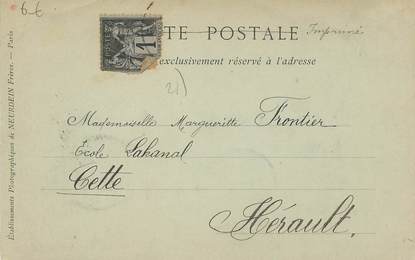 66
TE POSTALE
Imprimé
exclusivement réservé à l'adresse
21)
Mademoiselle Margueritte Frontier
École Lakanal
Cette
Hérault.
Établissements Photographiques de NEURDEIN Frères. — Paris